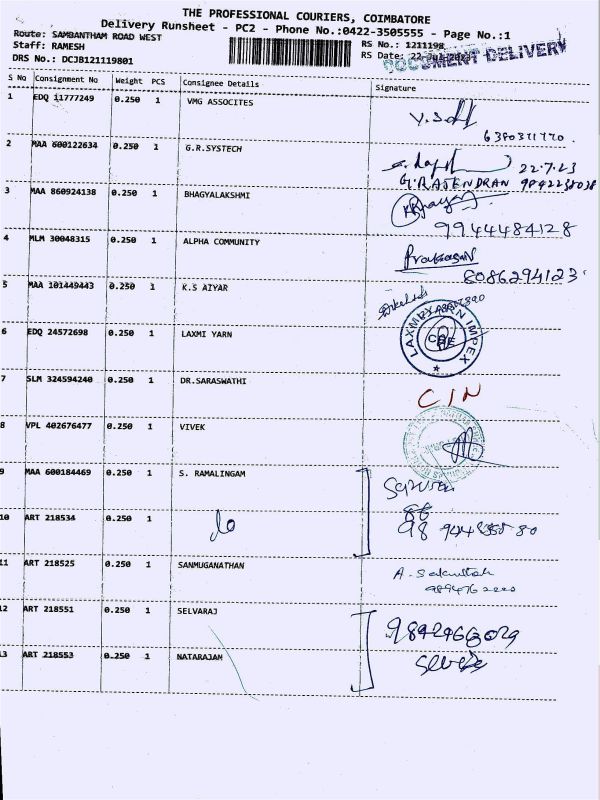 THE PROFESSIONAL COURIERS, COIMBATORE
Delivery Runsheet - PC2 - Phone No.:0422-3505555 - Page No.:1
Route: SAMBANTHAM ROAD WEST
Staff: RAMESH RS No.: 1211198
DRS No.: DCJB121119801 RS Date: 22
DOCUMENT DELIVERY
S No Consignment No Weight PCS Consignee Details Signature
1 EDQ 11777249 0.250 1 VMG ASSOCITES
6380311770.
2 MAA 600122634 0.250 1 G.R.SYSTECH
22.7.23
G.RAJENDRAN
3 MAA 860924138 0.250 1 BHAGYALAKSHMI
9944484128
4 MLM 30048315 0.250 1 ALPHA COMMUNITY
8086294123
5 MAA 101449443 0.250 1 K.S AIYAR
6 EDQ 24572698 0.250 1 LAXMI YARN
CBE
IMPEX
7 SLM 324594240 0.250 1 DR.SARASWATHI CIN
8 VPL 402676477 0.250 1 VIVEK
9 MAA 600184469 0.250 1 S. RAMALINGAM
10 ART 218534 0.250 1 do
11 ART 218525 0.250 1 SANMUGANATHAN
12 ART 218551 0.250 1 SELVARAJ
13 ART 218553 0.250 1 NATARAJAN